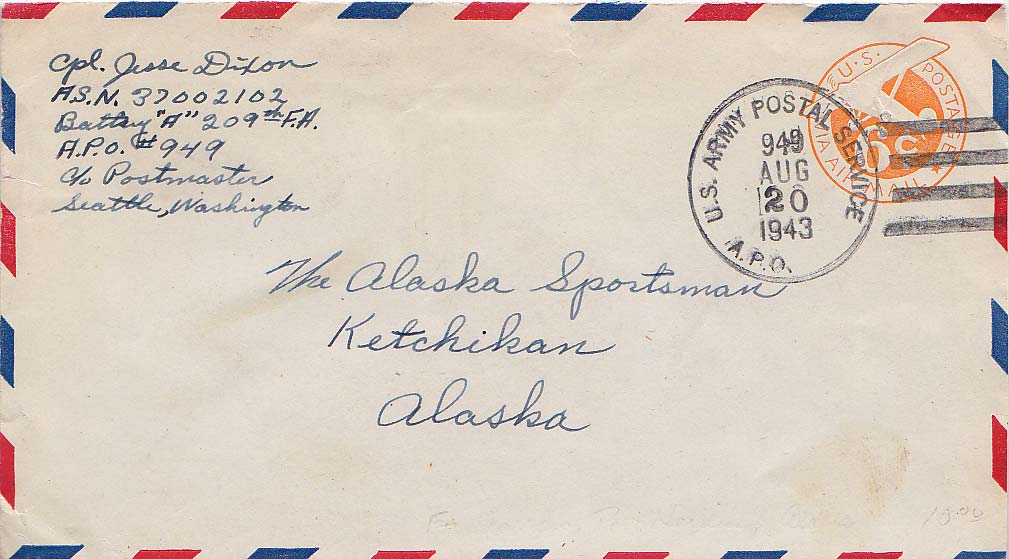 Cpl. Jesse Dixon
A.S.N. 37002102
Battry "A" 209th F.A.
A.P.O. # 949
c/o Postmaster
Seattle, Washington
U.S. POSTAGE
6c
VIA AIR MAIL
U.S. ARMY POSTAL SERVICE
949
AUG
20
1943
A.P.O.
The Alaska Sportsman
Ketchikan
Alaska
10.00